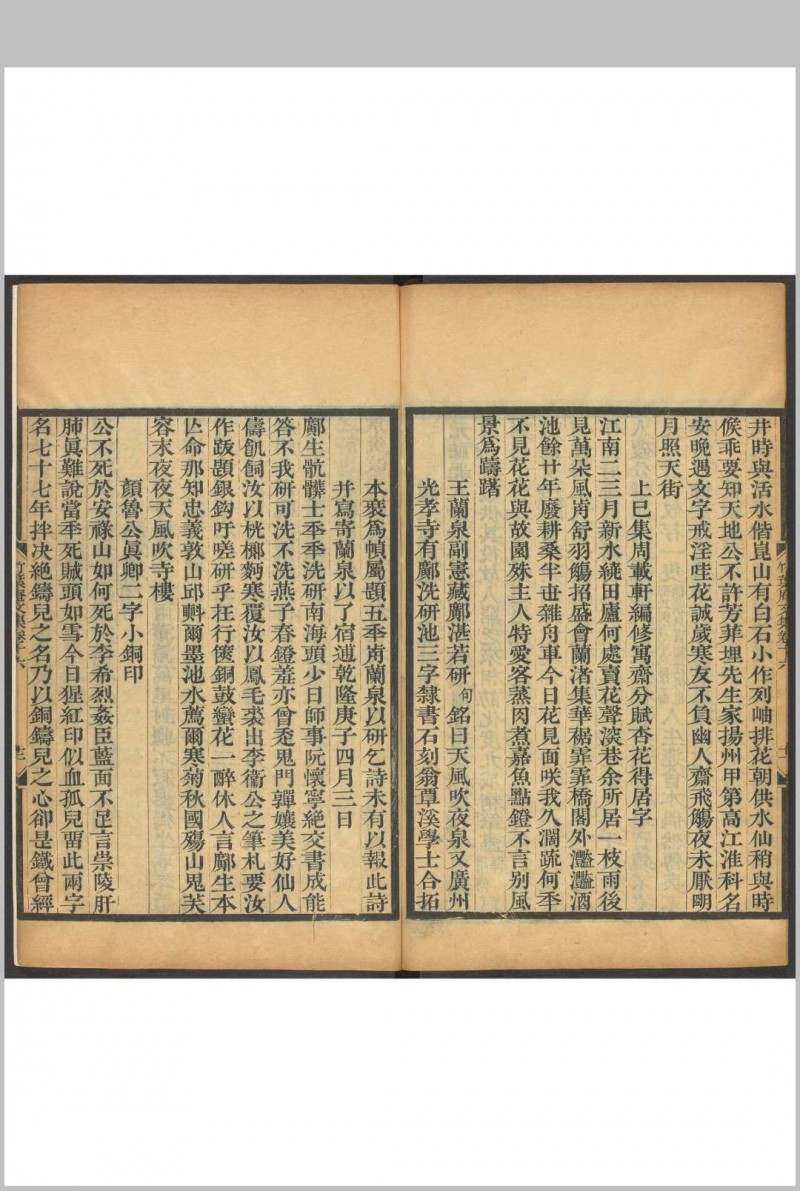 井時與活水偕崑山有白石小作列岫排花朝供水仙稍與時
候乖要知天地公不許芳菲埋先生家揚州甲第高江淮科名
安晚遇文字戒淫哇花誠歲寒友不負幽人齋飛觴夜未厭明
月照天街
上巳集周載軒編修寓齋分賦杏花得居字
江南二三月新水繞田廬何處賣花聲淡巷余所居一枝雨後
見萬朵風歬舒羽觴招盛會蘭渚集華裾霏霏橋閣外灩灩酒
池餘廿年廢耕桑半世雜舟車今日花見面咲我久濶疏何秊
不見花花與故園殊主人特愛客蒸肉煮嘉魚點鐙不言別風
景爲躊躇
王蘭泉副憲藏鄺湛若研句銘曰天風吹夜泉又廣州
光孝寺有鄺洗研池三字隸書石刻翁覃溪學士合拓
本裝爲幀屬題五秊歬蘭泉以研乞詩未有以報此詩
并寫寄蘭泉以了宿逋乾隆庚子四月三日
鄺生骯髒士秊秊洗研南海頭少日師事阮懷寧絶交書成能
答不我研可洗不洗燕子春鐙羞亦曾走鬼門鞸孃美好仙人
儔飢飼汝以桄榔麪寒覆汝以鳳毛裘出李衞公之筆札要汝
作跋題銀鈎吁嗟研乎在行篋銅鼓蠻花一醉休人言鄺生本
亾命那知忠義敦山邱斠爾墨池水薦爾寒菊秋國殤山鬼芙
容末夜夜天風吹寺樓
顏魯公眞卿二字小銅印
公不死於安祿山如何死於李希烈姦臣藍面不足言崇陵肝
肺眞難說當秊死賊頭如雪今日猩紅印似血孤兒畱此兩字
名七十七年拌决絶鑄兒之名乃以銅鑄兒之心卻是鐵曾經